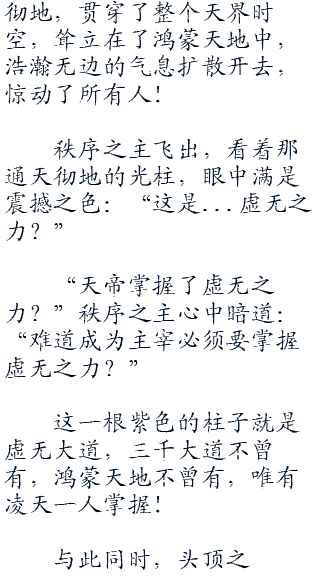 彻地，贯穿了整个天界时
空，耸立在了鸿蒙天地中，
浩瀚无边的气息扩散开去，
惊动了所有人！
秩序之主飞出，看着那
通天彻地的光柱，眼中满是
震撼之色：“这是...虚无之
力？”
“天帝掌握了虚无之
力？”秩序之主心中暗道：
“难道成为主宰必须要掌握
虚无之力？”
这一根紫色的柱子就是
虚无大道，三千大道不曾
有，鸿蒙天地不曾有，唯有
凌天一人掌握！
与此同时，头顶之